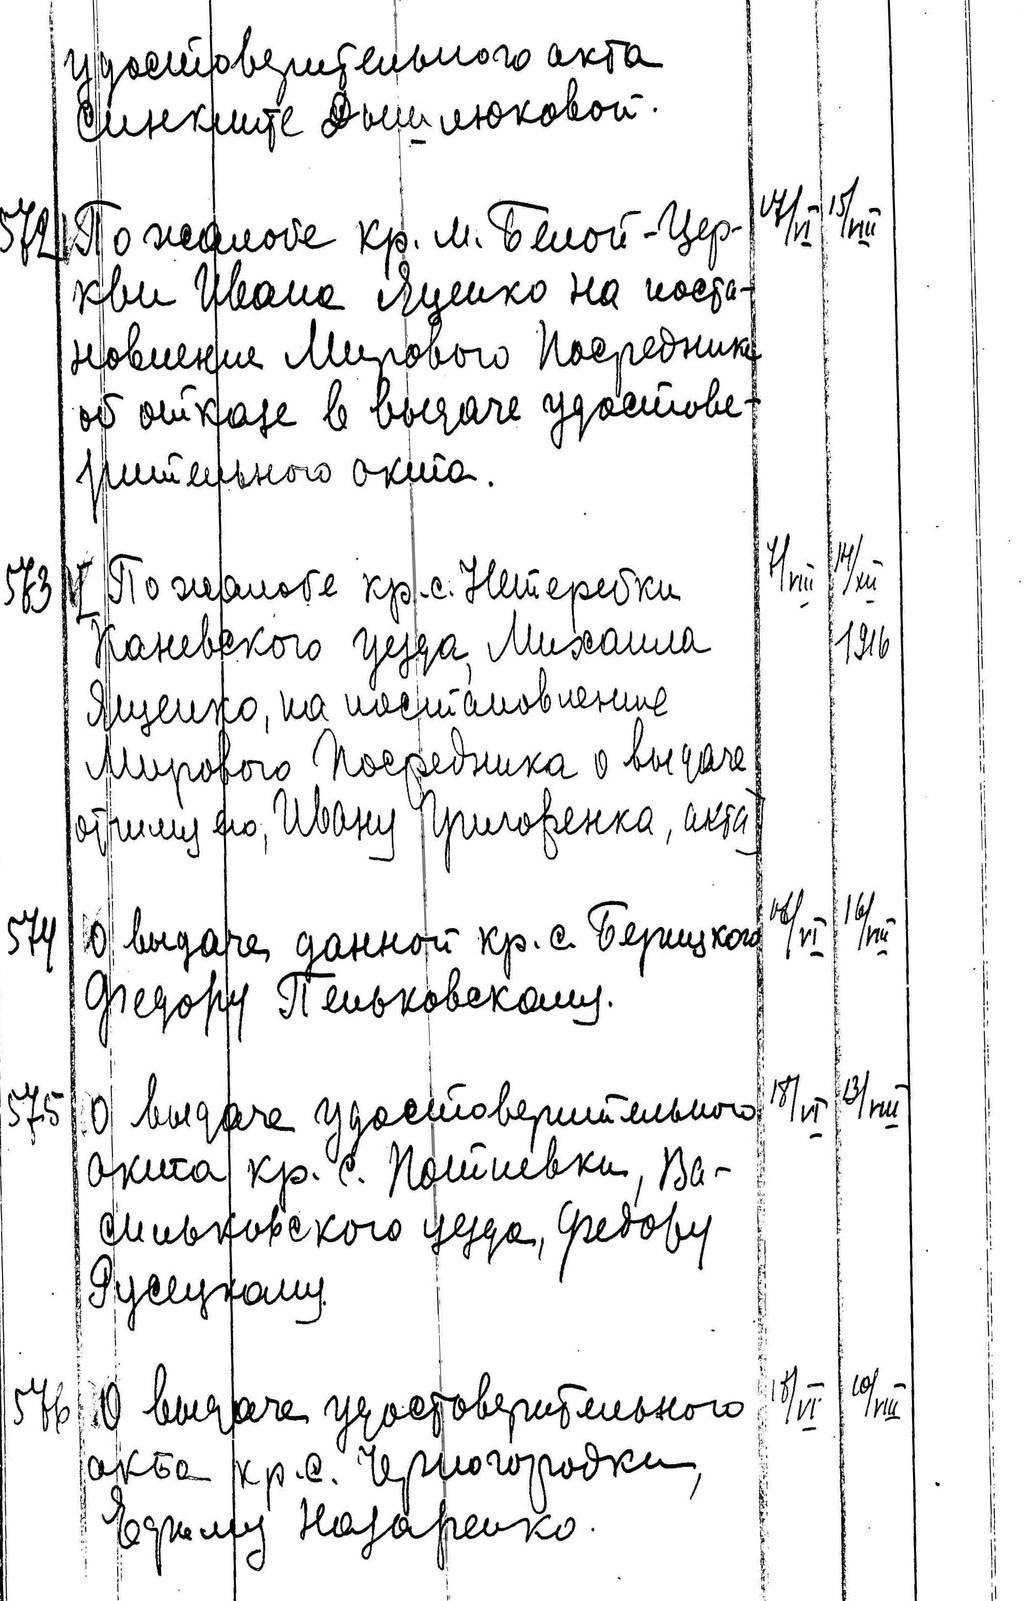 удостоверительного акта
Синклите
572 По жалобе кр. м. Белой-Цер- 17/VI 15/VIII
кви Ивана Яценко на поста-
новление Мирового Посредника
об отказе в выдаче удостове-
рительного акта.
573 V По жалобе кр. с. Нетеребки 7/VIII 14/XII
Каневского уезда, Михаила 1916
Ященко, на постановление
Мирового Посредника о выдаче
отчиму его, Ивану акта
574 О выдаче данной кр. с. 16/VI 16/VIII
Федору Пеньковскому.
575 О выдаче удостоверительного 18/VI 13/VIII
акта кр. с. Потиевки, Ва-
сильковского уезда, Федору
Русецкому
576 О выдаче удостоверительного 18/VI 10/VIII
акта кр. с. Черногородки,
Ефиму Назаренко.